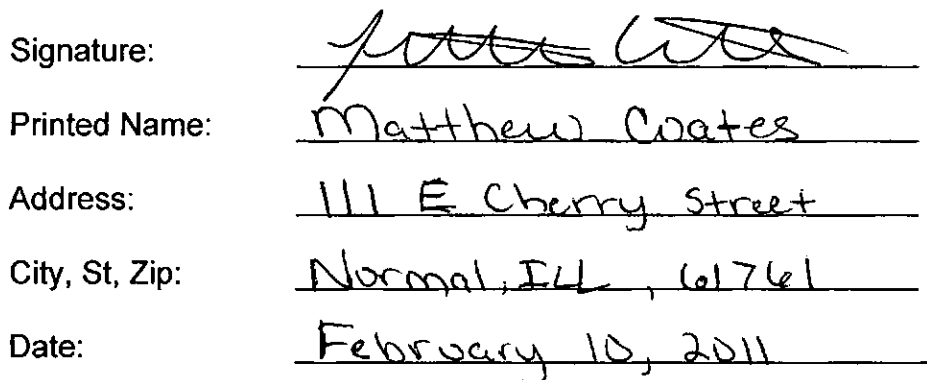 Signature:
Printed Name: Matthew Coates
Address: 111 E Cherry Street
City, St, Zip: Normal, ILL, 61761
Date: February 10, 2011